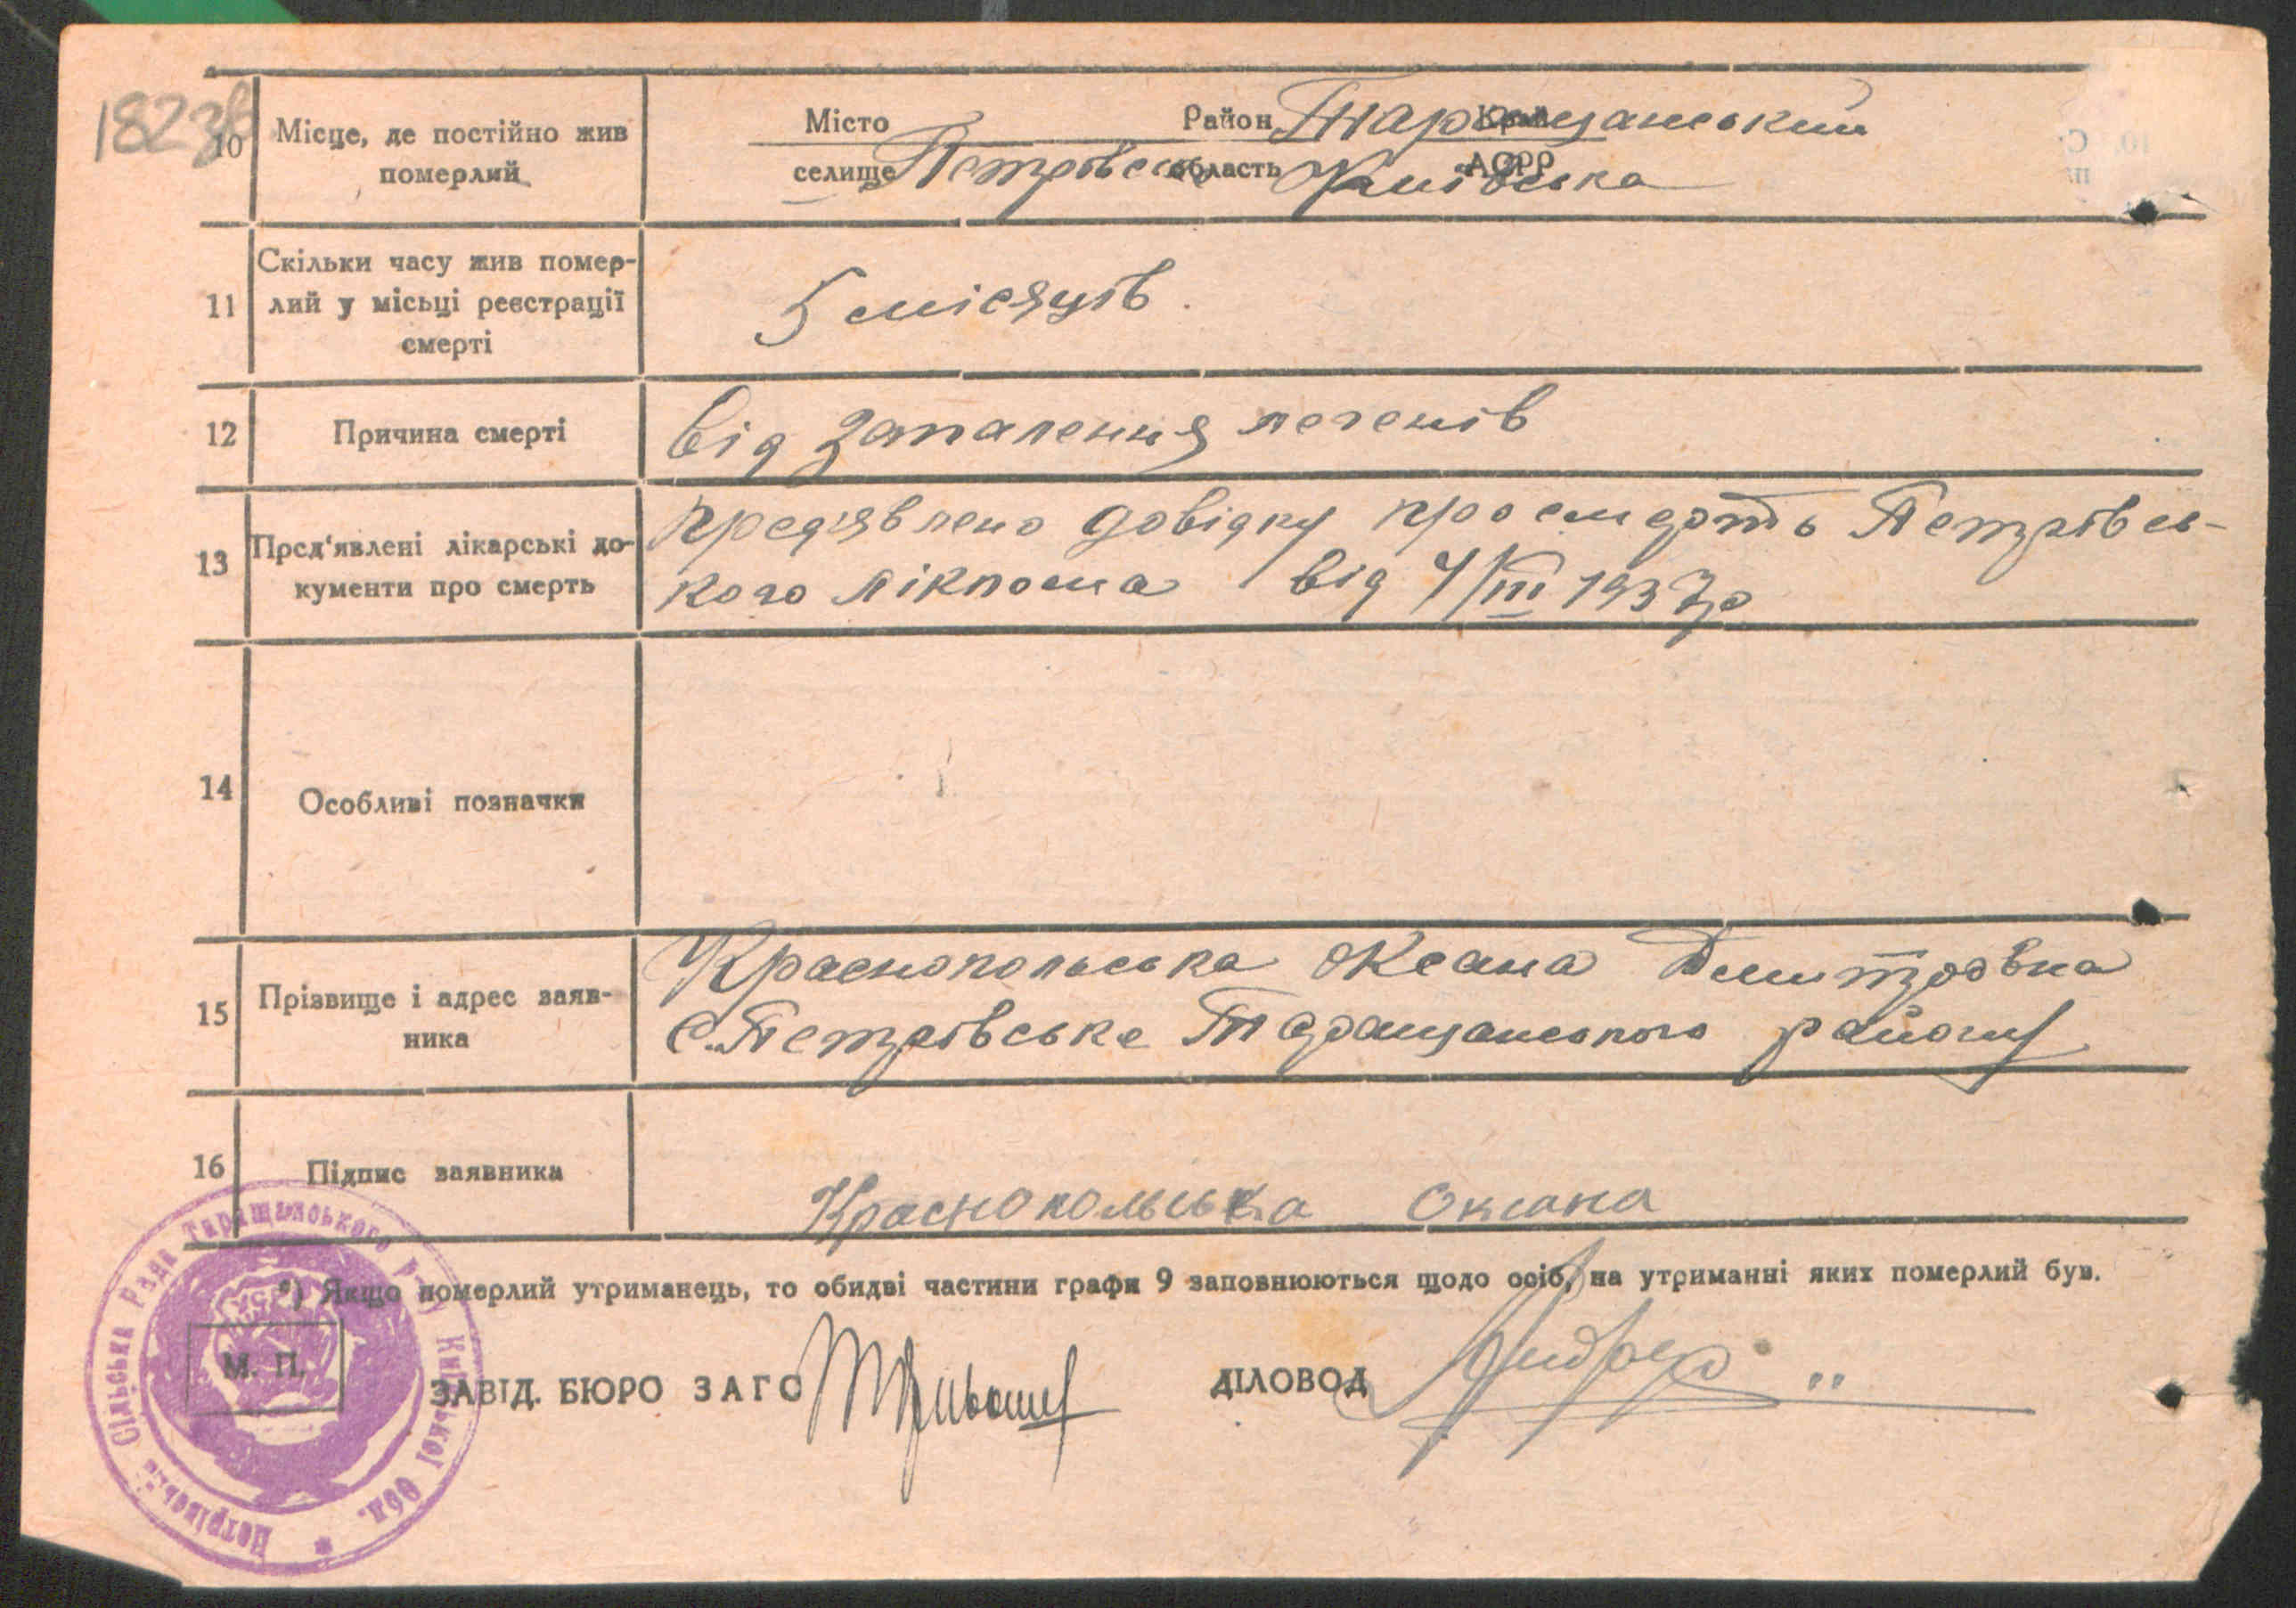 182зв
Місто Район Таращанський Край
10 Місце, де постійно жив
померлий
селище Петрівськ область Київська АСРР
11 Скільки часу жив помер-
лий у місьці реєстрації
смерті
5 місяців.
12 Причина смерті
від запалення легенів
13 Пред'явлені лікарські до-
кументи про смерть
предявлено довідку про смерть Петрівсь-
кого лікпома від 4/III 1937р
14 Особливі позначки
15 Прізвище і адрес заяв-
ника
Краснопольська Оксана Дмитровна
с. Петрівське Таращанського району
16 Підпис заявника
Краснопольська Оксана
*) Якщо померлий утриманець, то обидві частини графи 9 заповнюються щодо осіб, на утриманні яких померлий був.
М. П.
ЗАВІД. БЮРО ЗАГС
ДІЛОВОД
Петрівська Сільська Рада Таращанського р-ну Київської Обл.